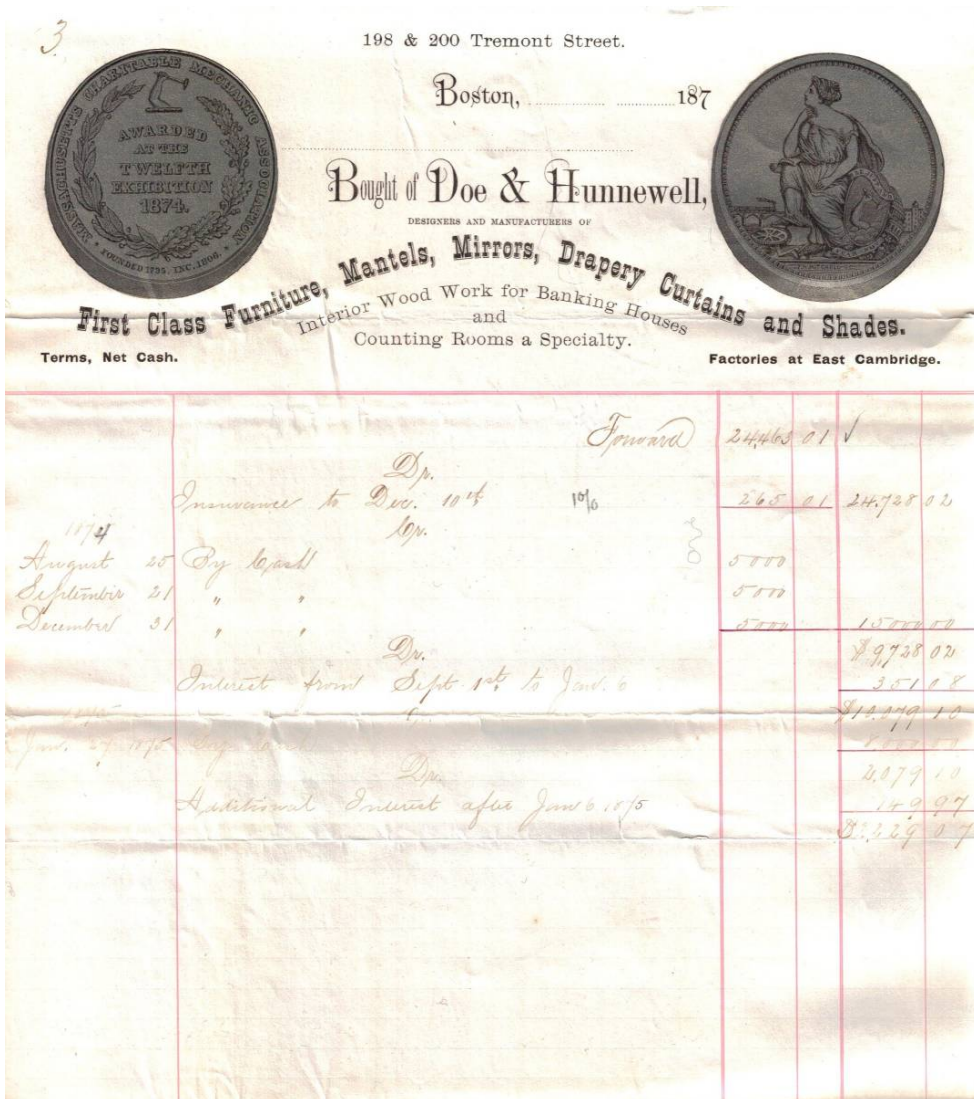 3
198 & 200 Tremont Street.
Boston, 187
MASSACHUSETTS CHARITABLE MECHANIC ASSOCIATION
AWARDED
AT THE
TWELFTH
EXHIBITION
1874.
FOUNDED 1795. INC. 1806.
Bought of Doe & Hunnewell,
DESIGNERS AND MANUFACTURERS OF
First Class Furniture, Mantels, Mirrors, Drapery Curtains and Shades.
Interior Wood Work for Banking Houses
and
Counting Rooms a Specialty.
Terms, Net Cash. Factories at East Cambridge.
Forward 24,463 01 √
Dr.
Insurance to Dec. 10th 10% 265 01 24.728 02
1874 Cr.
August 25 By Cash 5000
September 21 " " 5000
December 31 " " 5000 15000 00
$ 9,728 02
Dr.
Interest from Sept. 1st to Jan. 6 351 08
$10.079 10
Jan. 1875 By Cash
Dr. 2,079 10
Additional Interest after Jan 6 1875 149 97
$2.229 07